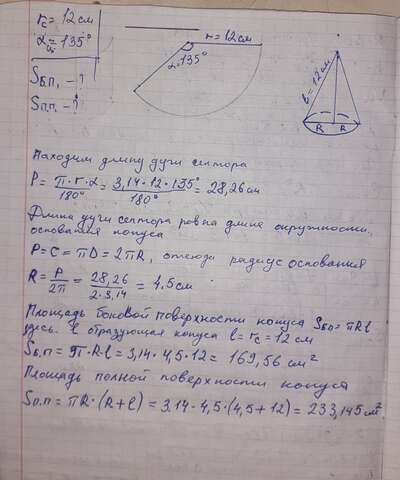 rc = 12 см
αц = 135°
Sб.п. - ?
Sп.п. - ?
r = 12 см
α = 135°
l = 12 см
R R
Находим длину дуги сектора
P = π · r · α / 180° = 3,14 · 12 · 135° / 180° = 28,26 см
Длина дуги сектора равна длине окружности,
основания конуса
P = C = πD = 2πR, отсюда радиус основания
R = P / 2π = 28,26 / 2·3,14 = 4.5 см
Площадь боковой поверхности конуса Sб.п = πRl
здесь. l образующая конуса l = rc = 12 см
Sб.п = π·R·l = 3,14 · 4,5 · 12 = 169,56 см²
Площадь полной поверхности конуса
Sп.п = πR · (R + l) = 3.14 · 4,5 · (4,5 + 12) = 233,145 см²